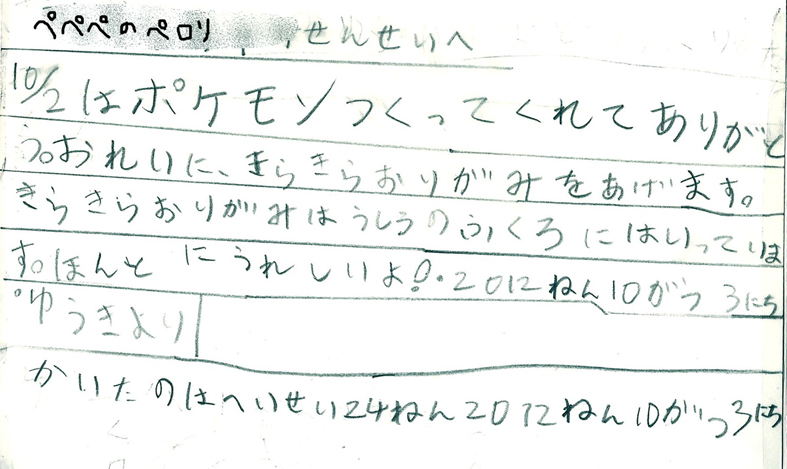 ペペペのペロリ せんせいへ
10/2はポケモンつくってくれてありがと
う。おれいに、きらきらおりがみをあげます。
きらきらおりがみはうしろのふくろにはいっていま
す。ほんとにうれしいよ!。2012ねん10がつ3にち
ゆうきより
かいたのはへいせい24ねん2012ねん10がつ3にち